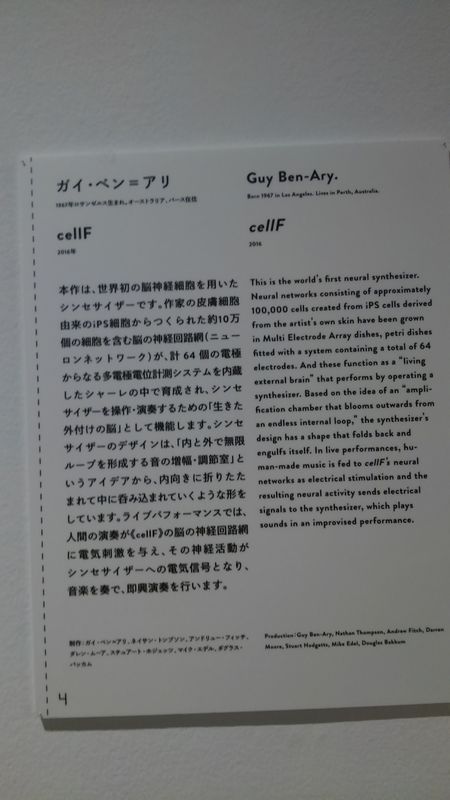 ガイ・ベン＝アリ
1967年ロサンゼルス生まれ。オーストラリア、パース在住
cellF
2016年
本作は、世界初の脳神経細胞を用いた
シンセサイザーです。作家の皮膚細胞
由来のiPS細胞からつくられた約10万
個の細胞を含む脳の神経回路網(ニュー
ロンネットワーク)が、計 64 個の電極
からなる多電極電位計測システムを内蔵
したシャーレの中で育成され、シンセ
サイザーを操作・演奏するための「生きた
外付けの脳」として機能します。シンセ
サイザーのデザインは、「内と外で無限
ループを形成する音の増幅・調節室」と
いうアイデアから、内向きに折りたた
まれて中に呑み込まれていくような形を
しています。ライブパフォーマンスでは、
人間の演奏が《cellF》の脳の神経回路網
に電気刺激を与え、その神経活動が
シンセサイザーへの電気信号となり、
音楽を奏で、即興演奏を行います。
制作：ガイ・ベン＝アリ、ネイサン・トンプソン、アンドリュー・フィッチ、
ダレン・ムーア、ステュアート・ホジェッツ、マイク・エデル、ダグラス・
バッカム
4
Guy Ben-Ary.
Born 1967 in Los Angeles. Lives in Perth, Australia.
cellF
2016
This is the world's first neural synthesizer.
Neural networks consisting of approximately
100,000 cells created from iPS cells derived
from the artist's own skin have been grown
in Multi Electrode Array dishes, petri dishes
fitted with a system containing a total of 64
electrodes. And these function as a “living
external brain” that performs by operating a
synthesizer. Based on the idea of an “ampli-
fication chamber that blooms outwards from
an endless internal loop,” the synthesizer's
design has a shape that folds back and
engulfs itself. In live performances, hu-
man-made music is fed to cellF's neural
networks as electrical stimulation and the
resulting neural activity sends electrical
signals to the synthesizer, which plays
sounds in an improvised performance.
Production：Guy Ben-Ary, Nathan Thompson, Andrew Fitch, Darren
Moore, Stuart Hodgetts, Mike Edel, Douglas Bakkum